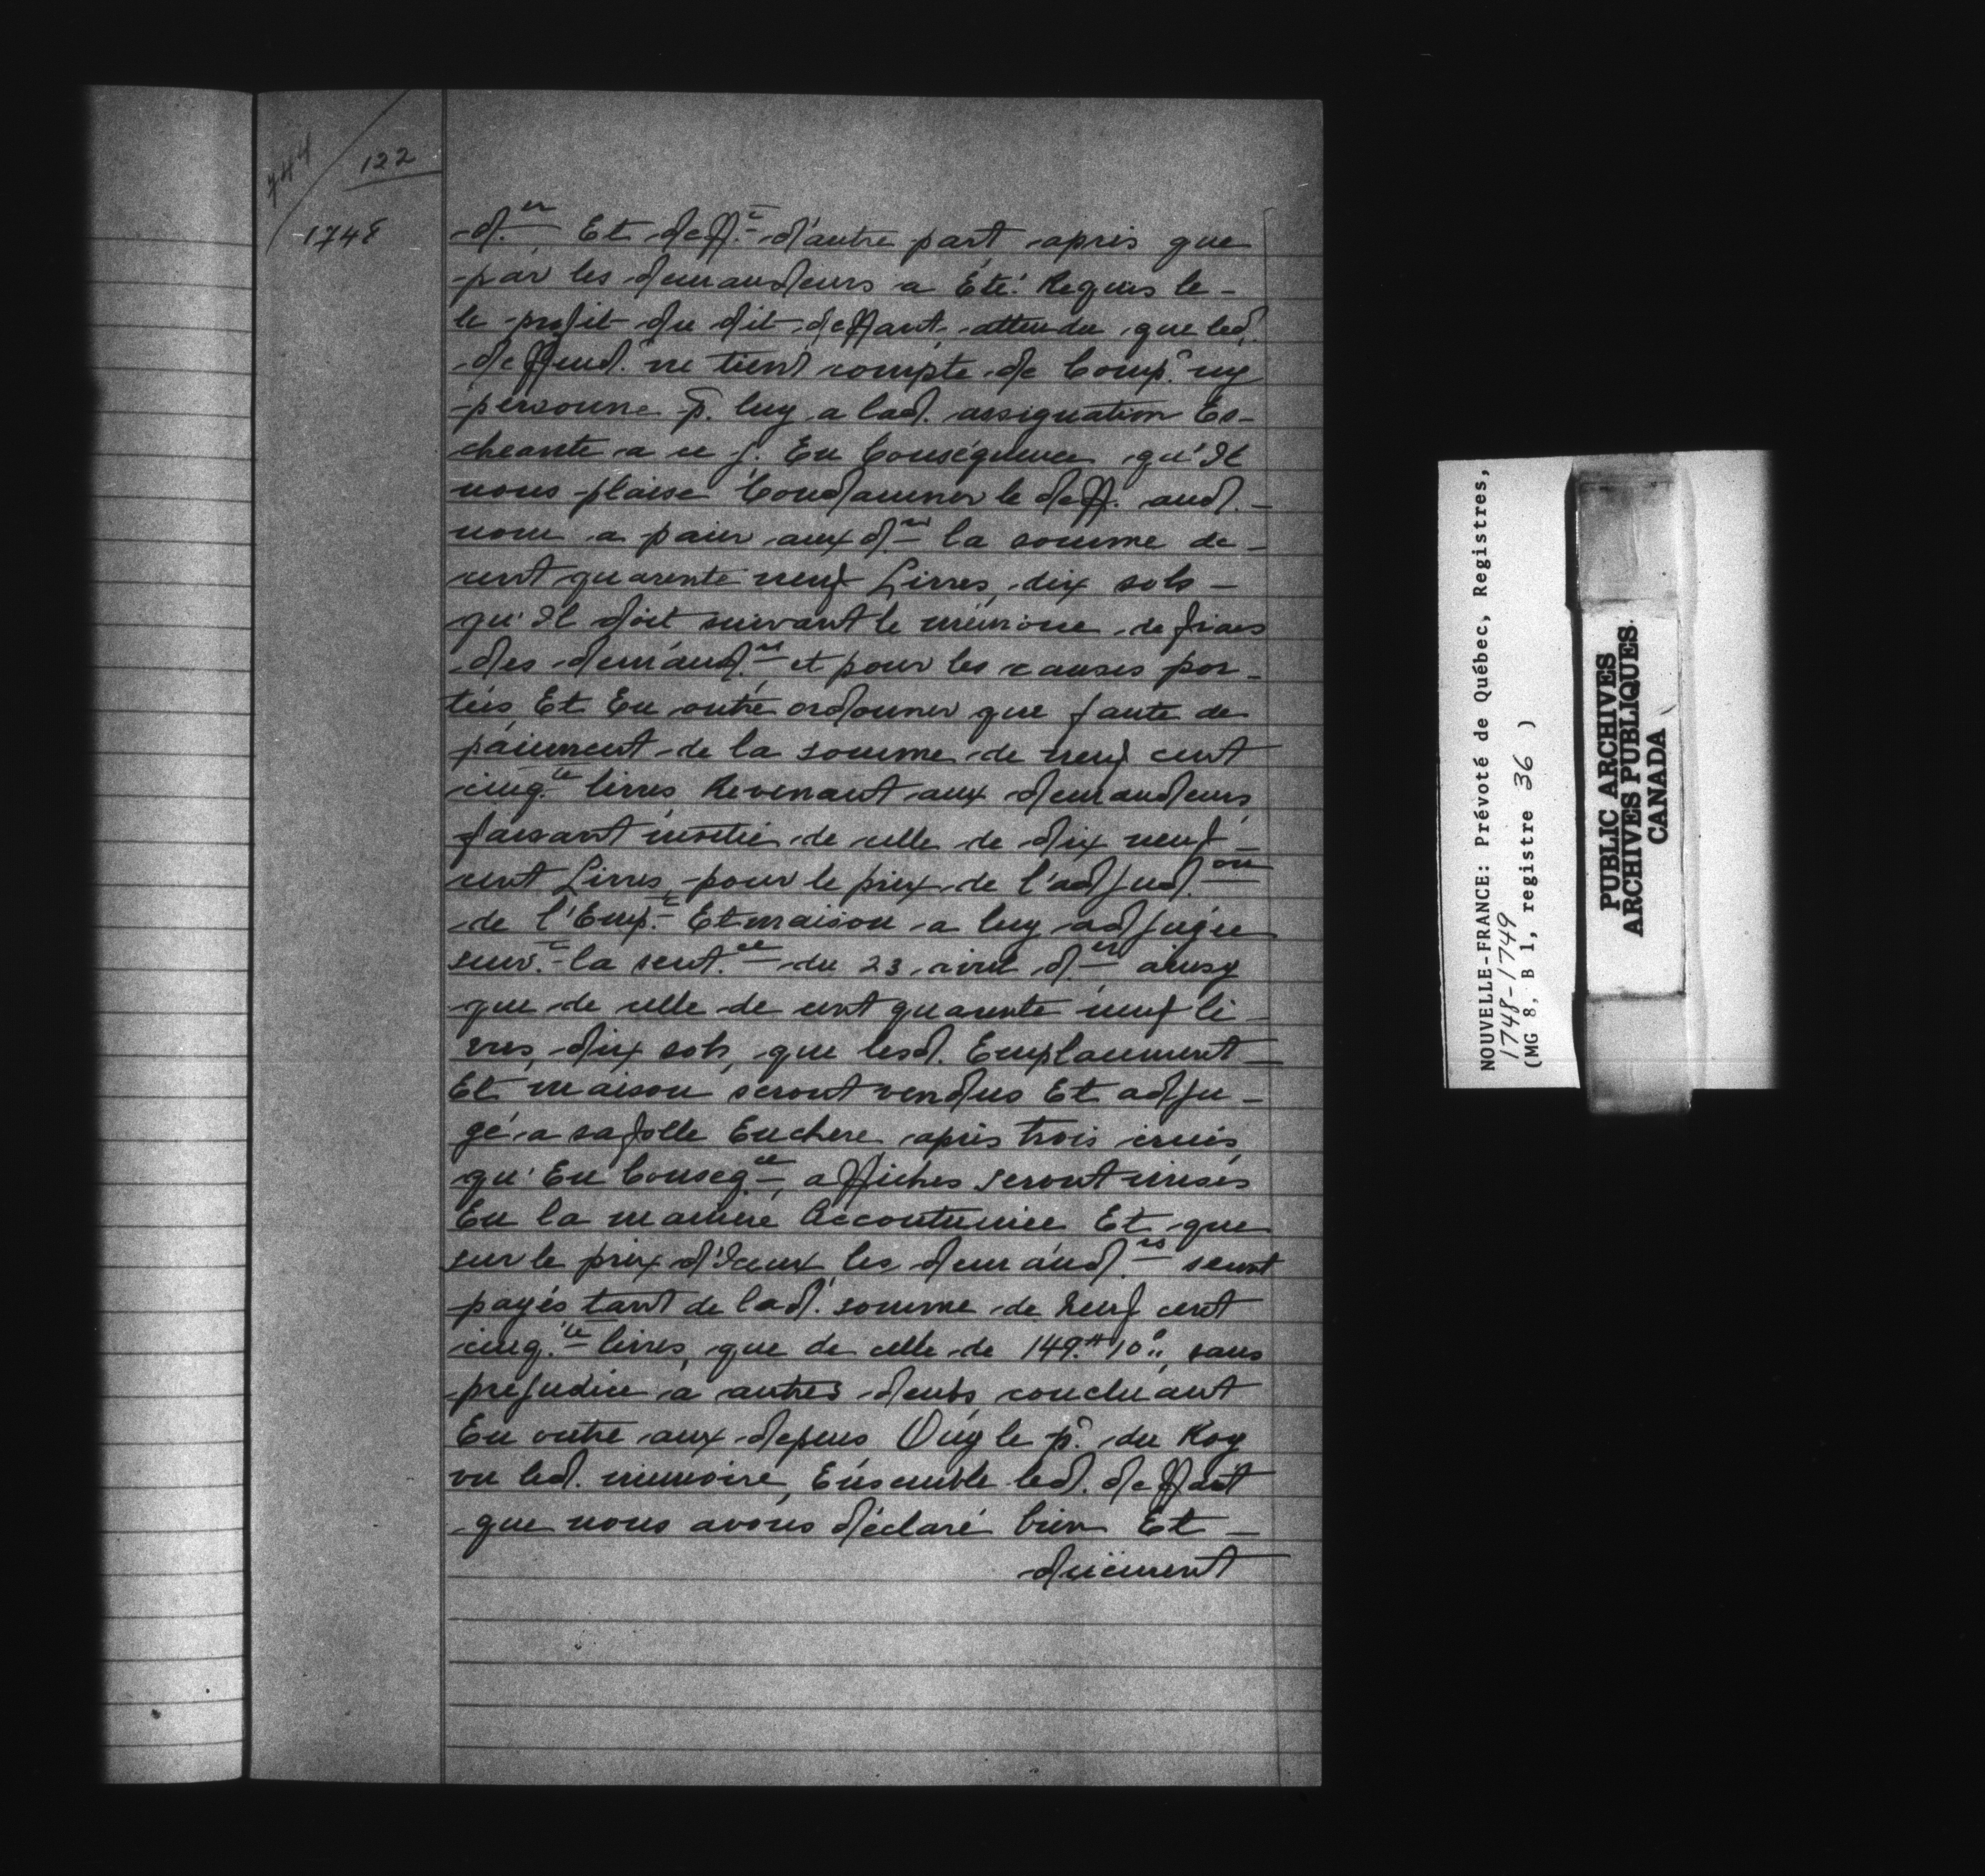 744
122
1748
d.er Et deff.t d'autre part après que
par les demandeurs a Eté Requis le -
le profit du dit deffaut, attendu que led.
deffend. ne tient compte de Comp.r ny
personne p. luy a lad. assignation Es-
cheante a ce j. En Conséquence qu'Il
nous plaise Condamner le deff. aud. -
nom a paier aux d.rs la somme de -
cent quarente neuf Livres, dix sols -
qu'Il doit suivant le mémoire de frais
des demand.rs et pour les causes por -
tées Et En outre ordonner que faute de
paiement de la somme de neuf cent
cinq.te livres Revenant aux demandeurs
faisant moitié de celle de dix neuf -
cent Livres, pour le prix de l'adjud.on
de l'Emp.t Et maison a luy adjugée
suiv.t la sent.ce du 23 avril d.er ainsy
que de celle de cent quarente neuf li -
vres, dix sols, que lesd. Emplacement -
Et maison seront vendus Et adju -
gé a sa folle Enchere après trois criées
qu'En Conseq.ce, affiches seront mises
En la maniere Accoutumée Et que
sur le prix d'Iceux les demand.rs seront
payés tant de lad. somme de neuf cent
cinq.te livres, que de celle de 149.# 10.s, sans
prejudice a autres deubs, concluant
En outre aux depens Ouy le p.r du Roy
vu led. mémoire, Ensemble led. deffaut
que nous avons déclaré bien Et -
duëment
NOUVELLE-FRANCE: Prévoté de Québec, Registres,
1748-1749
(MG 8, B 1, registre 36 )
PUBLIC ARCHIVES
ARCHIVES PUBLIQUES
CANADA